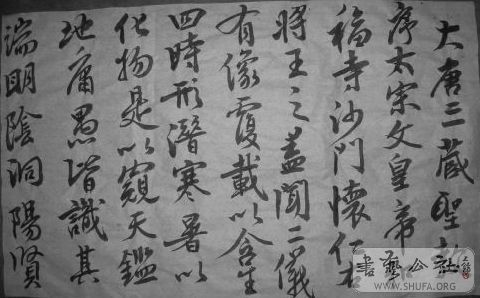 大唐三藏聖
序太宗文皇帝
福寺沙門懷仁
將王之盖聞二儀
有像覆載以含生
四時形潛寒暑以
化物是以窺天鑑
地庸愚皆識其
端明陰洞陽賢
WWW.SHUFA.ORG